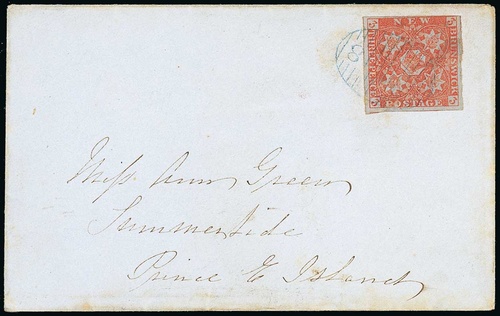 NEW
BRUNSWICK
POSTAGE
THREE PENCE
3 3 3 3
Miss Ann Green
Summerside
Prince E Island